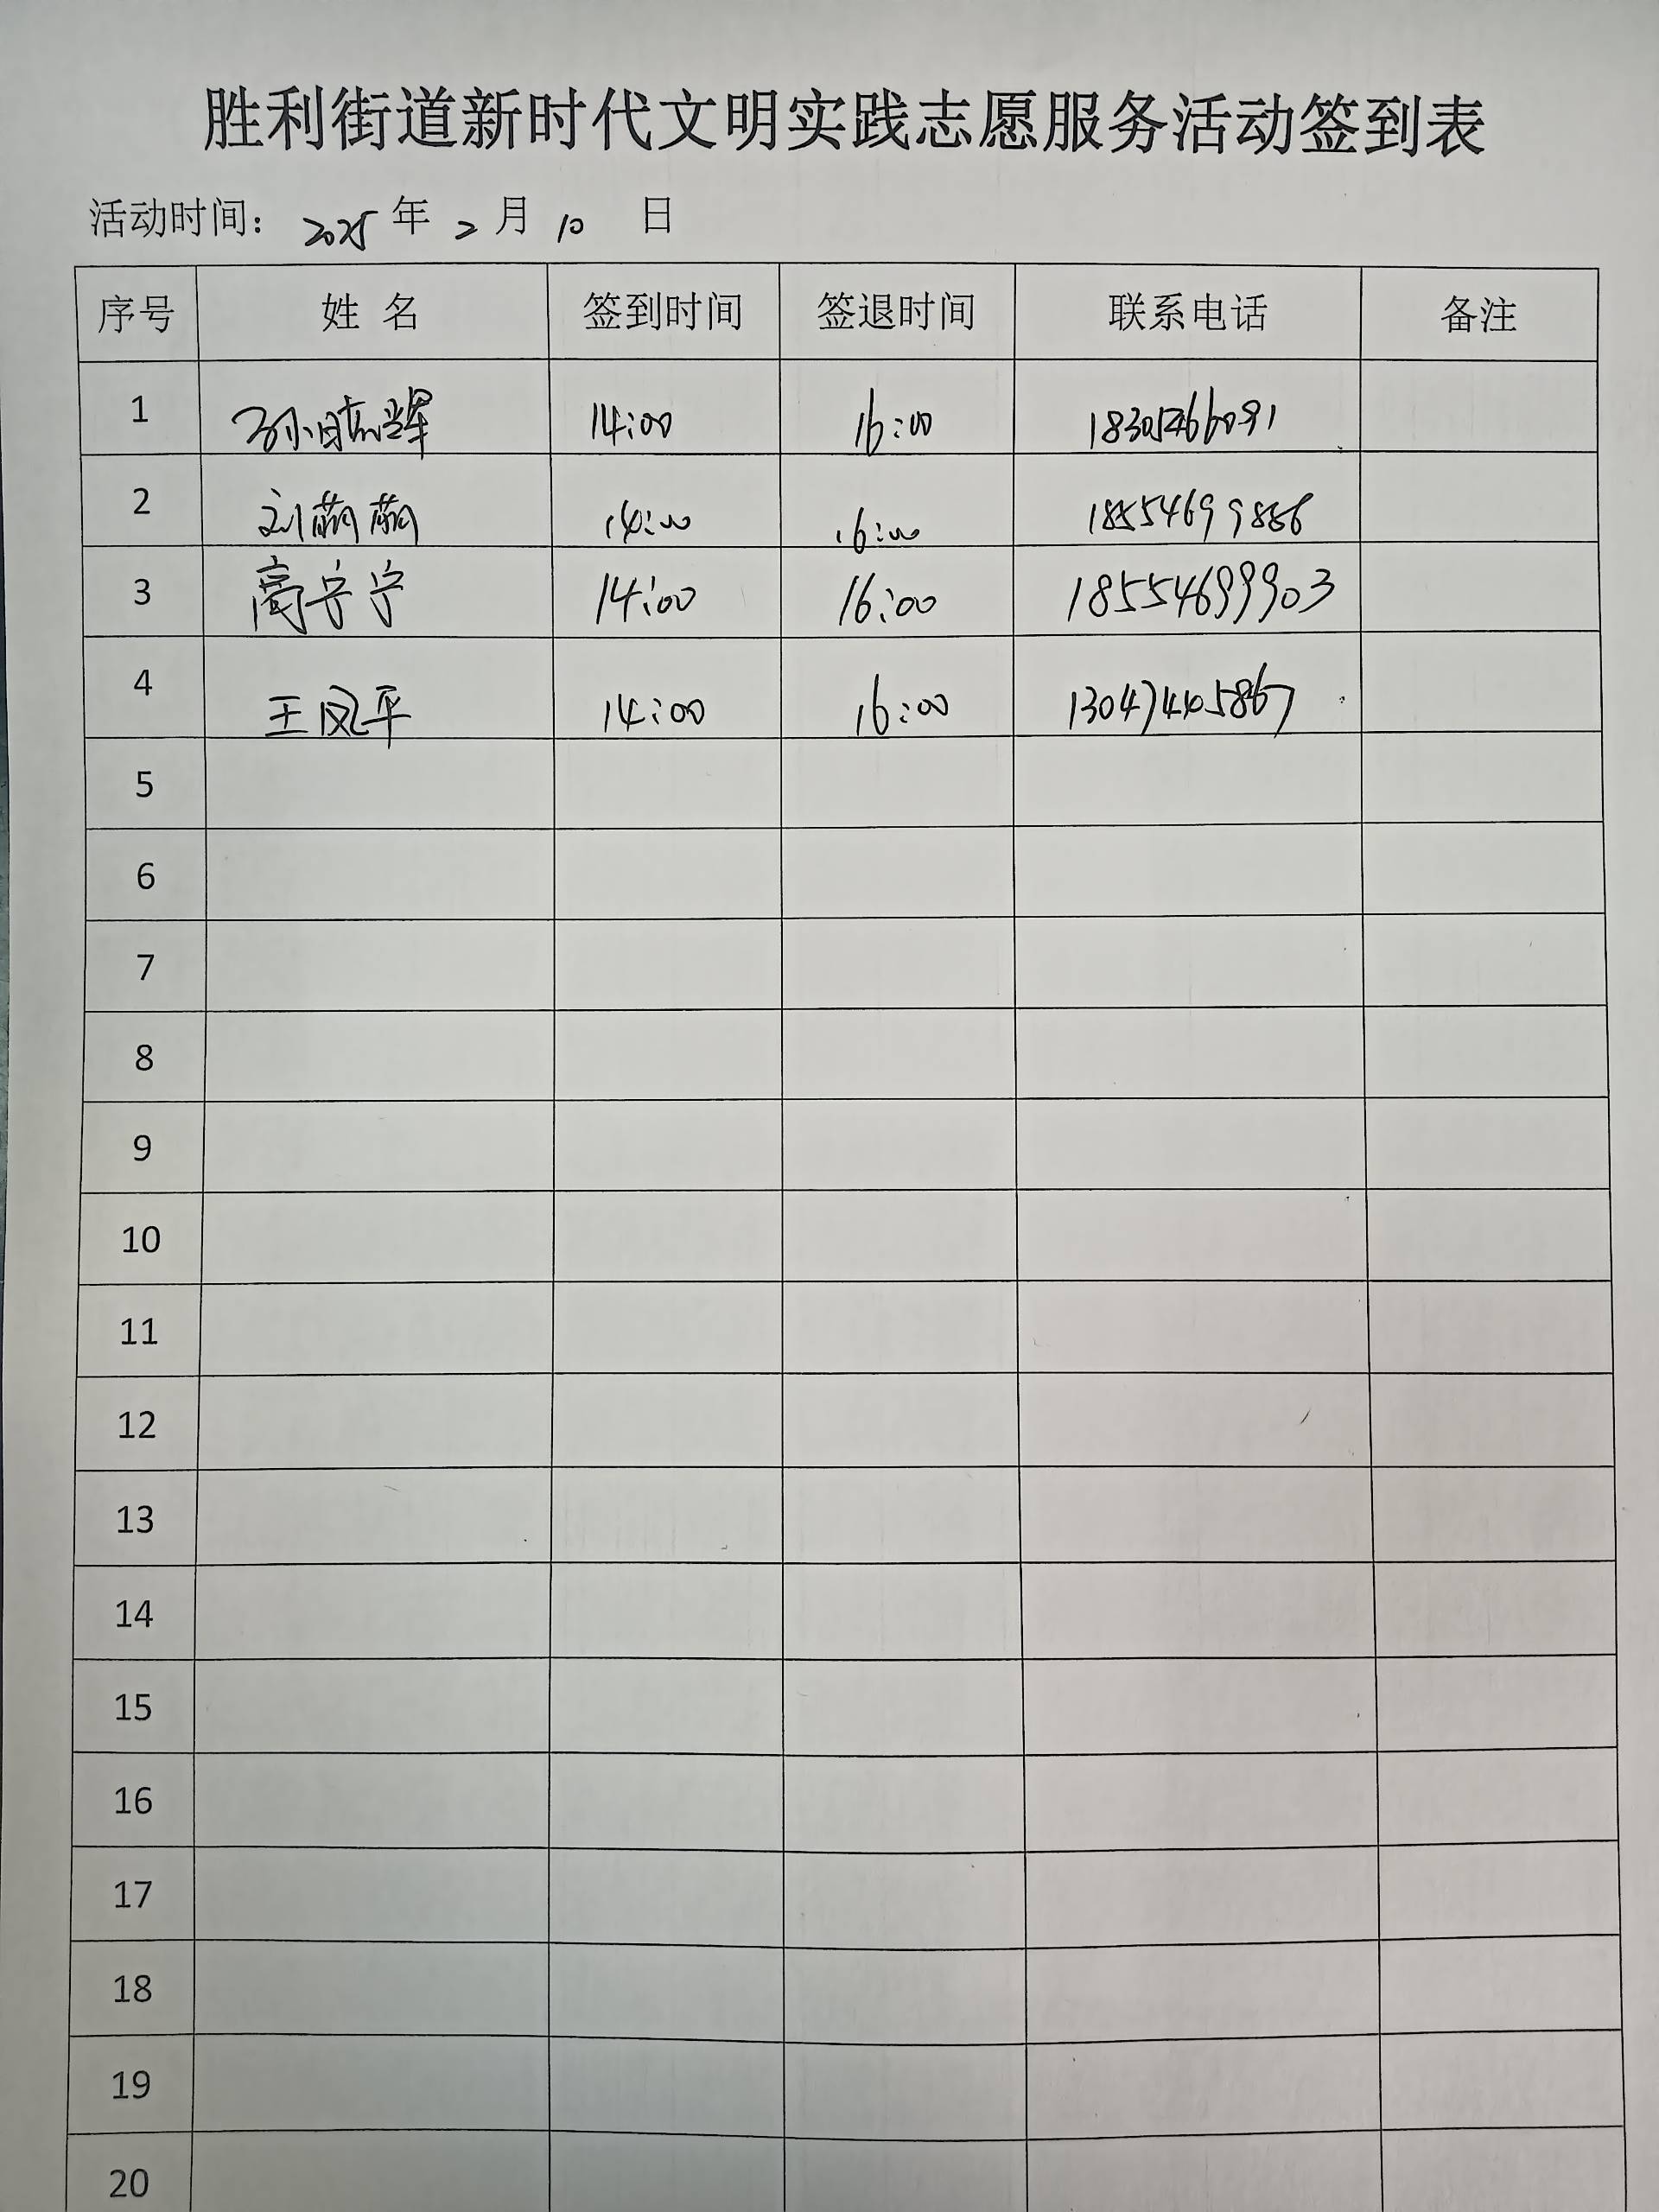 胜利街道新时代文明实践志愿服务活动签到表
活动时间： 2025 年 2 月 10 日
序号 姓 名 签到时间 签退时间 联系电话 备注
1 孙晓辉 14:00 16:00 18305466091
2 刘萌萌 14:00 16:00 18554699886
3 高宁宁 14:00 16:00 18554699903
4 王凤平 14:00 16:00 13047445867
5
6
7
8
9
10
11
12
13
14
15
16
17
18
19
20